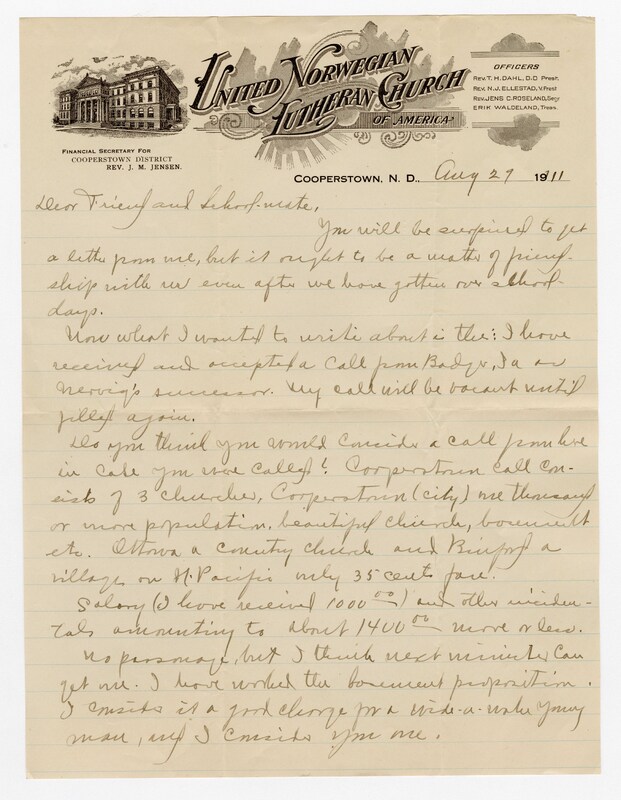 UNITED NORWEGIAN
LUTHERAN CHURCH
OF AMERICA
OFFICERS
REV. T. H. DAHL, D.D Prest.
REV. N. J. ELLESTAD, V. Prest
REV. JENS C. ROSELAND, Secy
ERIK WALDELAND, Treas.
FINANCIAL SECRETARY FOR
COOPERSTOWN DISTRICT
REV. J. M. JENSEN.
COOPERSTOWN, N. D., Aug 29 1911
Dear Friend and School-mate,
You will be surprised to get
a letter from me, but it ought to be a matter of friend-
ship with us even after we have gotten over school-
days.
Now what I wanted to write about is this: I have
received and accepted a call from Badger, Ia as
Nervig's successor. My call will be vacant until
filled again.
Do you think you would consider a call from here
in case you were called? Cooperstown call con-
sists of 3 churches, Cooperstown (city) one thousand
or more population, beautiful church, basement
etc. Ottawa a country church and Binford a
village on N. Pacific only 35 cents fare.
Salary (I have received 1000 00) and other inciden-
tals amounting to about 1400 00 more or less.
No parsonage, but I think next minister can
get one. I have worked the basement proposition.
I consider it a good charge for a wide-a-wake young
man, and I consider you one.